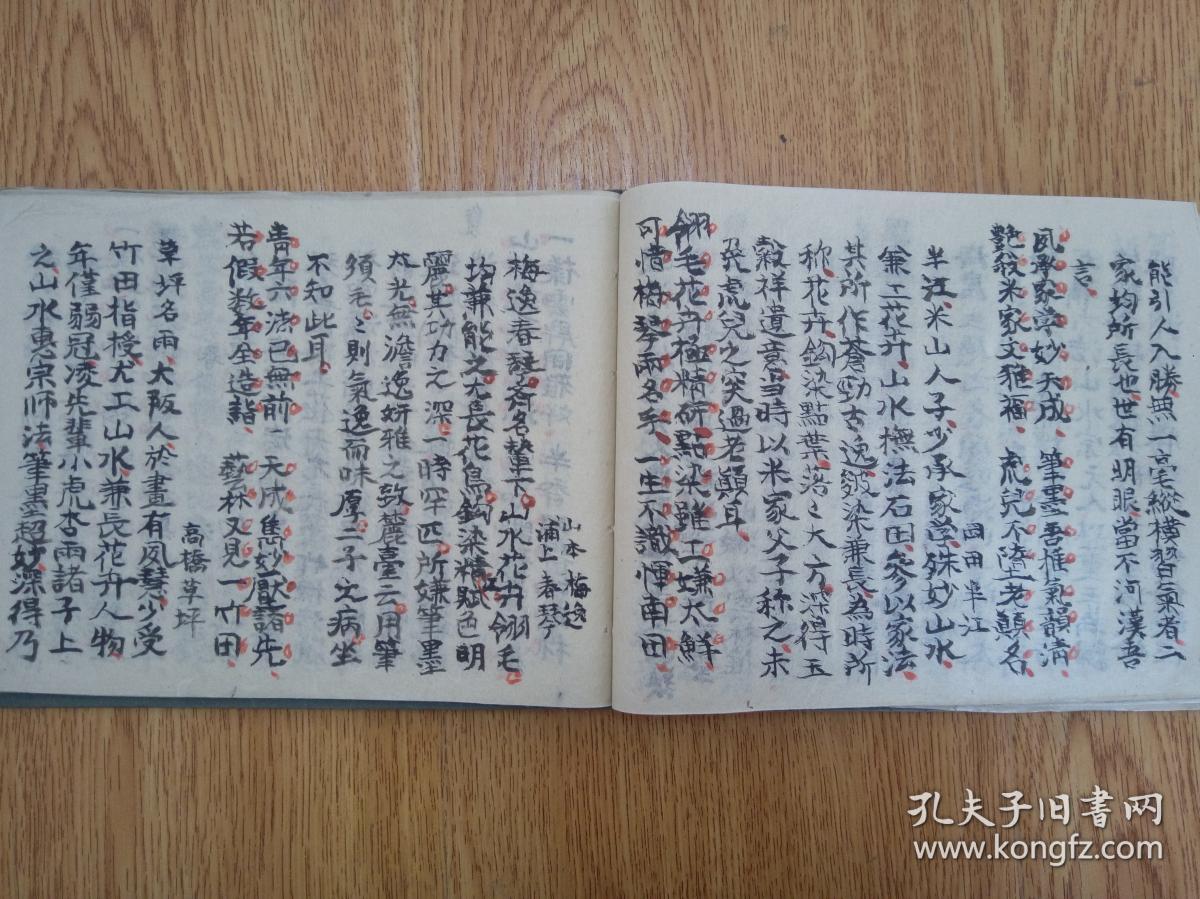 能引人入勝無一毫縱橫習氣者二
家均所長也世有明眼當不河漢吾
言
夙承家学妙天成 筆墨吾推氣韻清
艷殺米家文雅福 虎兒不墮老顛名
岡田半江
半江米山人子少承家学殊妙山水
兼工花卉山水橅法石田參以家法
其所作蒼勁古逸皴染兼長為時所
称花卉鈎染點葉落々大方深得玉
穀祥遺意当時以米家父子称之未
虎兒之突過老顛耳
翎毛花卉極精研點染雖工嫌太鮮
可惜梅琴兩名手一生不識惲南田
山本 梅逸
浦上 春琴
梅逸春琴斉名輦下山水花卉翎毛
均兼能之尤長花鳥鈎染精賦色明
麗其功力之深一時罕匹所嫌筆墨
太光無澹逸妍雅之致麓臺云用筆
須毛々則氣逸而味厚二子之病坐
不知此耳
青年六法已無前 天成雋妙厭諸先
若假数年全造詣 藝林又見一竹田
高橋草坪
草坪名雨大阪人於畫有夙慧少受
竹田指授尤工山水兼長花卉人物
年僅弱冠凌先輩小虎杏雨諸子上
之山水惠宗師法筆墨超妙深得乃
孔夫子旧书网
www.kongfz.com